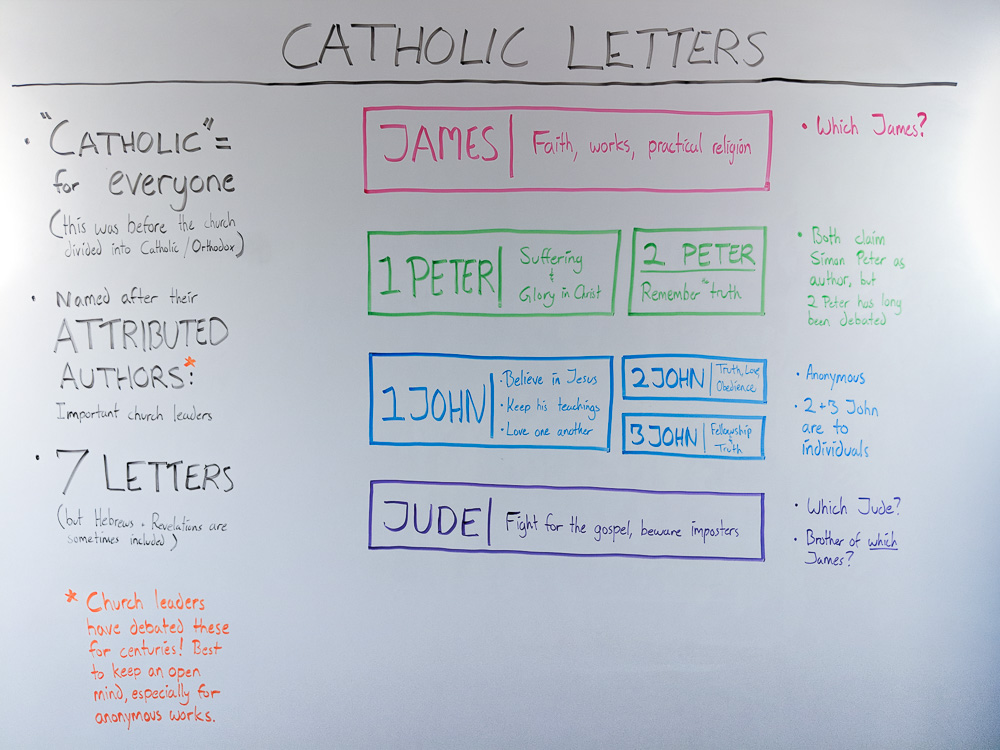 CATHOLIC LETTERS
• "CATHOLIC" =
for everyone
(this was before the church
divided into Catholic/Orthodox)
• Named after their
ATTRIBUTED
AUTHORS*:
Important church leaders
• 7 LETTERS
(but Hebrews + Revelations are
sometimes included)
* Church leaders
have debated these
for centuries! Best
to keep an open
mind, especially for
anonymous works.
JAMES | Faith, works, practical religion
• Which James?
1 PETER | Suffering
+
Glory in Christ
2 PETER
Remember the truth
• Both claim
Simon Peter as
author, but
2 Peter has long
been debated
1 JOHN | • Believe in Jesus
• Keep his teachings
• Love one another
2 JOHN | Truth, Love,
Obedience
3 JOHN | Fellowship
+
Truth
• Anonymous
• 2+3 John
are to
individuals
JUDE | Fight for the gospel, beware imposters
• Which Jude?
• Brother of which
James?